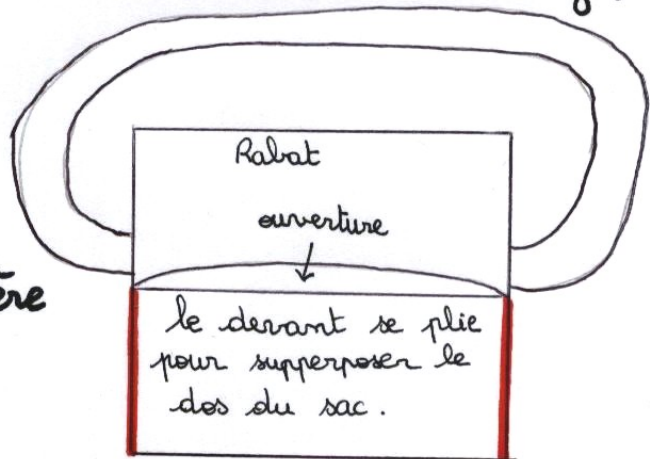 Rabat
ouverture
le devant se plie
pour supperposer le
dos du sac.